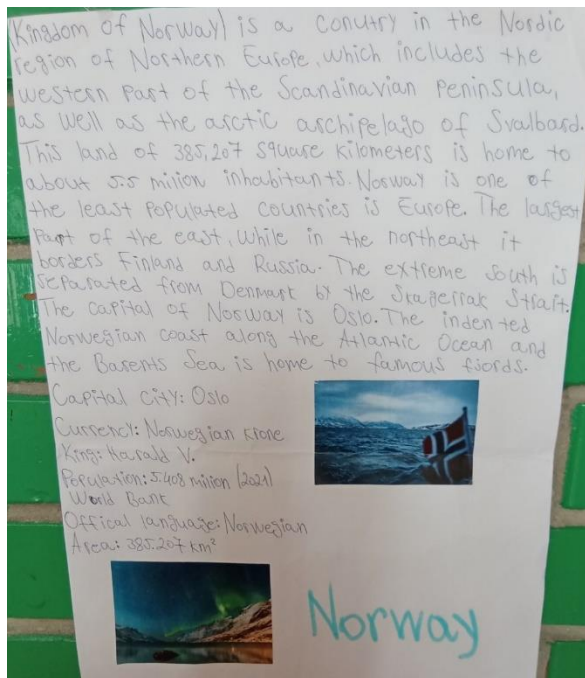 Kingdom of Norway) is a conutry in the Nordic
region of Northern Europe, which includes the
western part of the Scandinavian Peninsula,
as well as the arctic archipelago of Svalbard.
This land of 385,207 square kilometers is home to
about 5.5 milion inhabitants. Norway is one of
the least populated countries is Europe. The largest
part of the east, while in the northeast it
borders Finland and Russia. The extreme south is
separated from Denmark by the Skagerrak Strait.
The capital of Norway is Oslo. The indented
Norwegian coast along the Atlantic Ocean and
the Barents Sea is home to famous fjords.
Capital city: Oslo
Currency: Norwegian krone
King: Harald V.
Population: 5.408 milion (2021)
World Bank
Offical language: Norwegian
Area: 385.207 km²
Norway